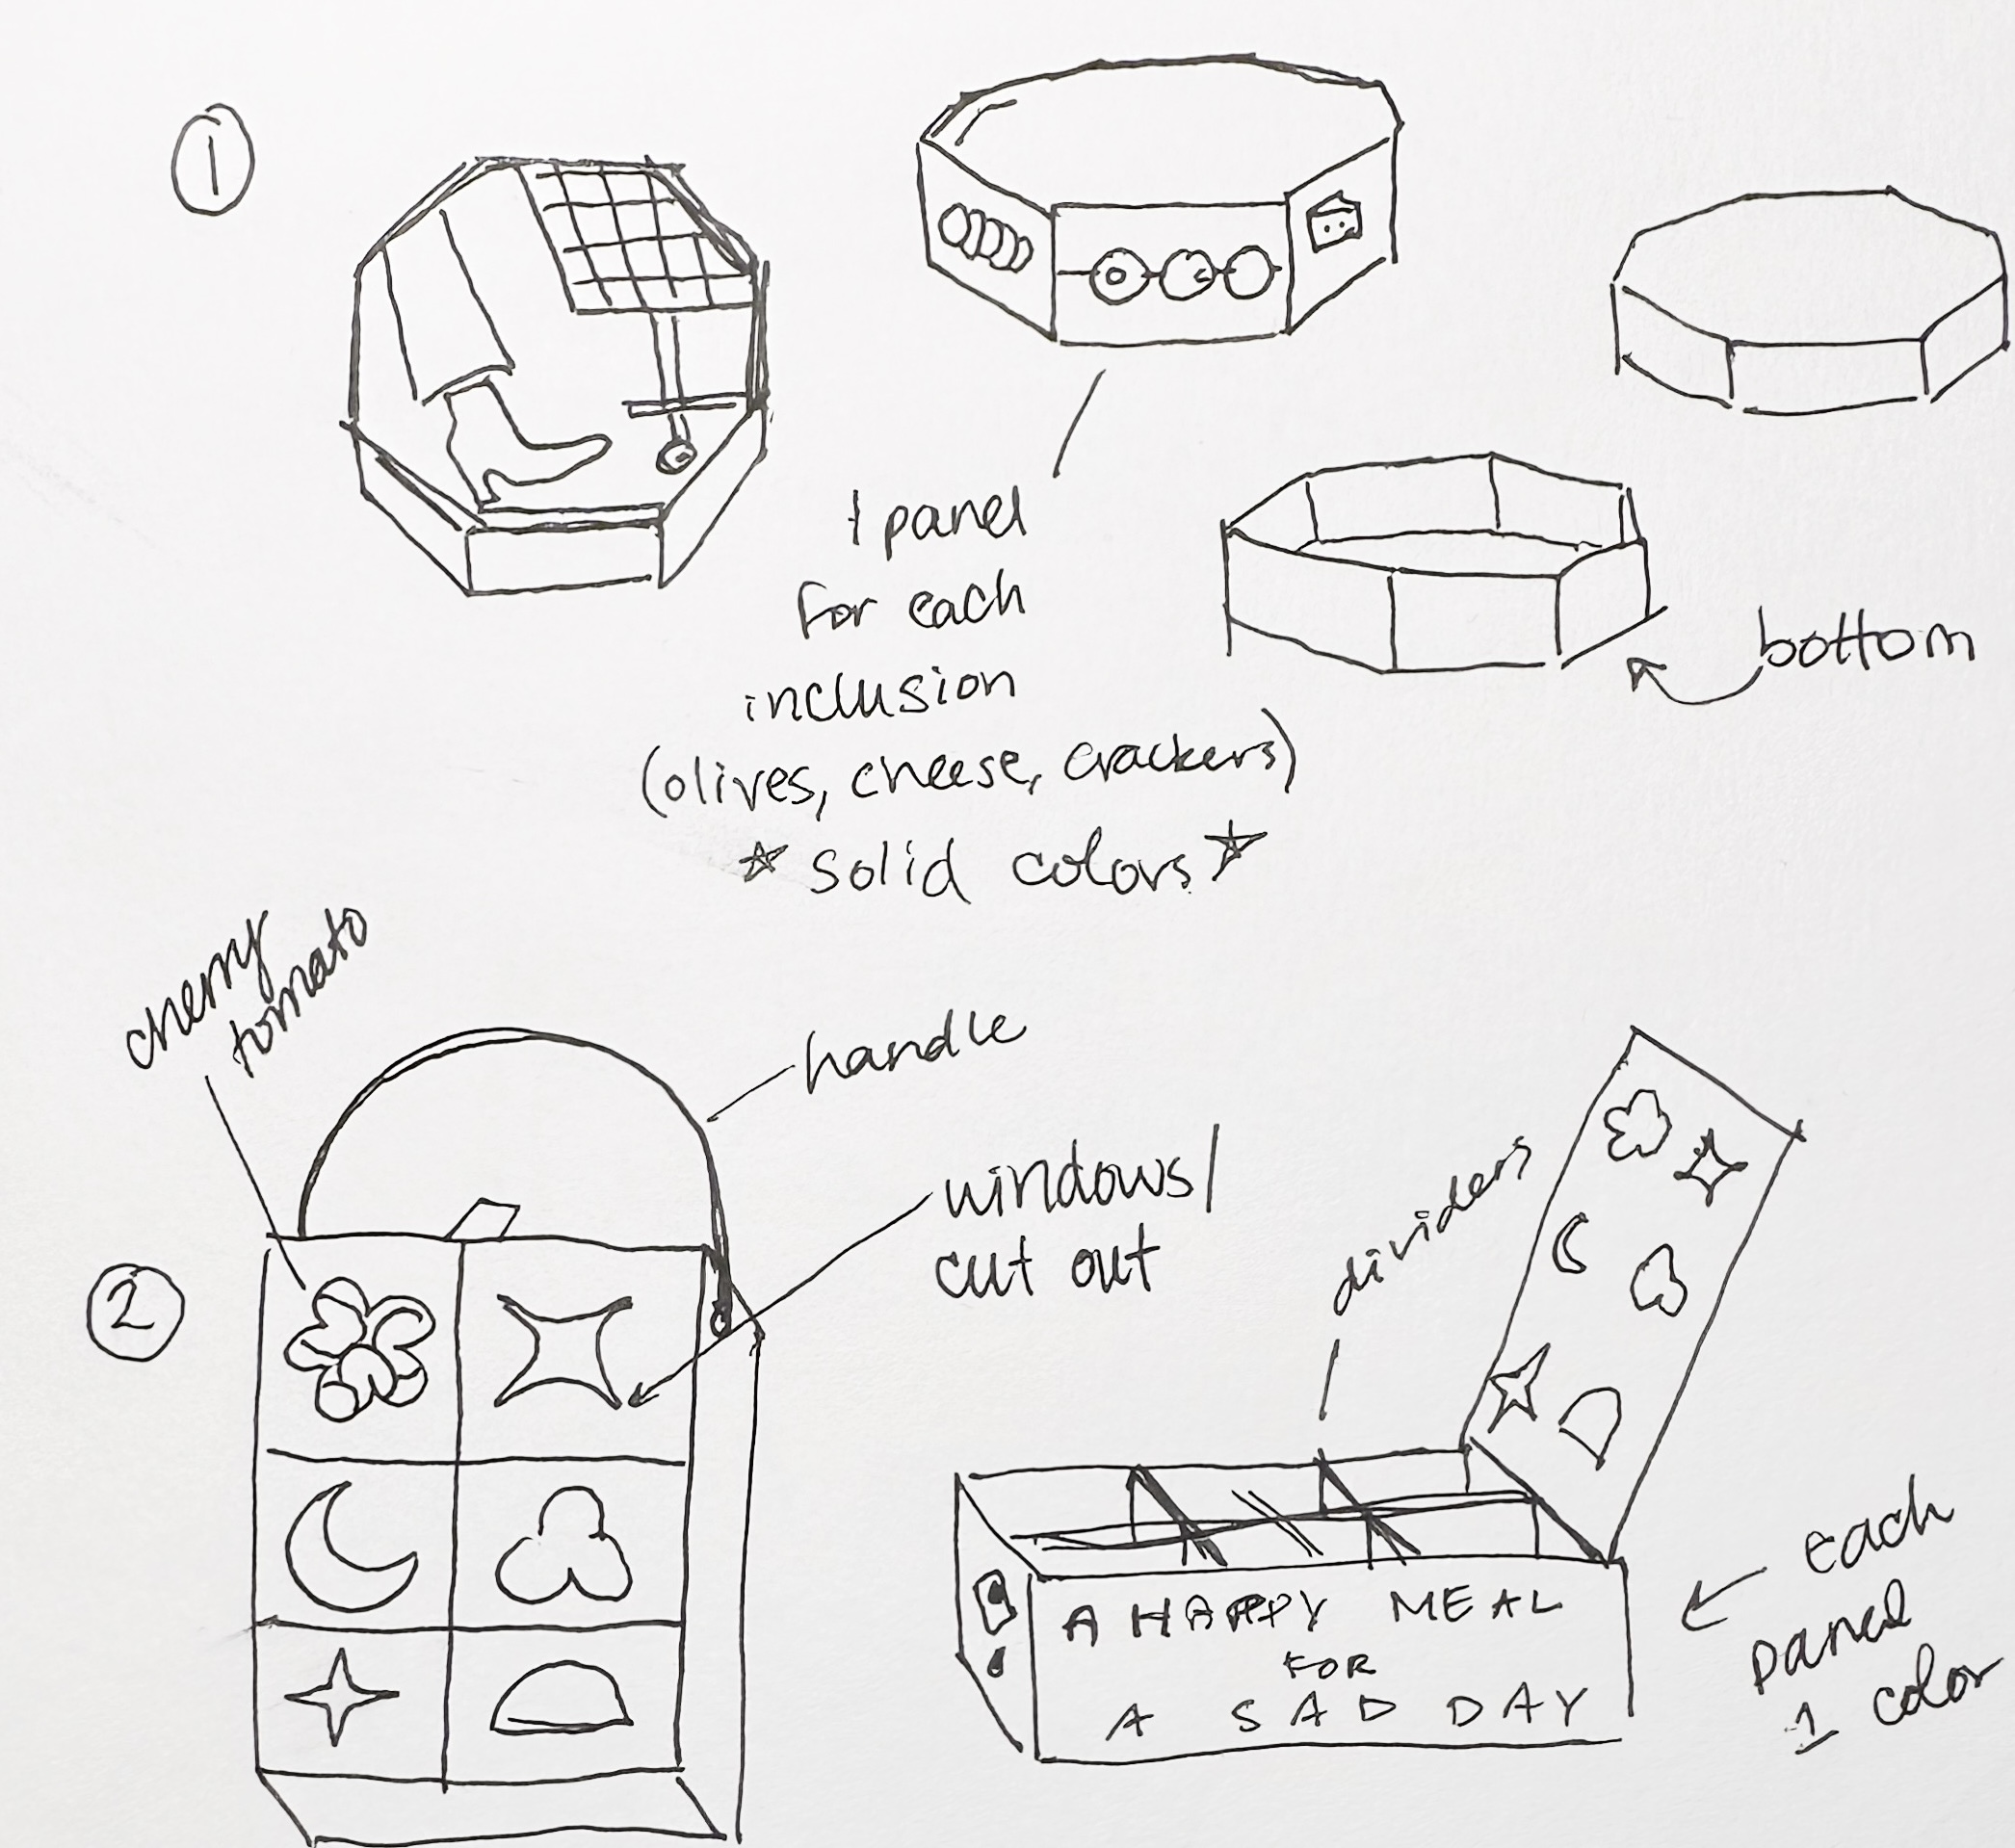 1
1 panel
for each
inclusion
(olives, cheese, crackers)
☆ solid colors ☆
bottom
cherry
tomato
handle
windows/
cut out
dividers
2
A HAPPY MEAL
FOR
A SAD DAY
each
panel
1 color